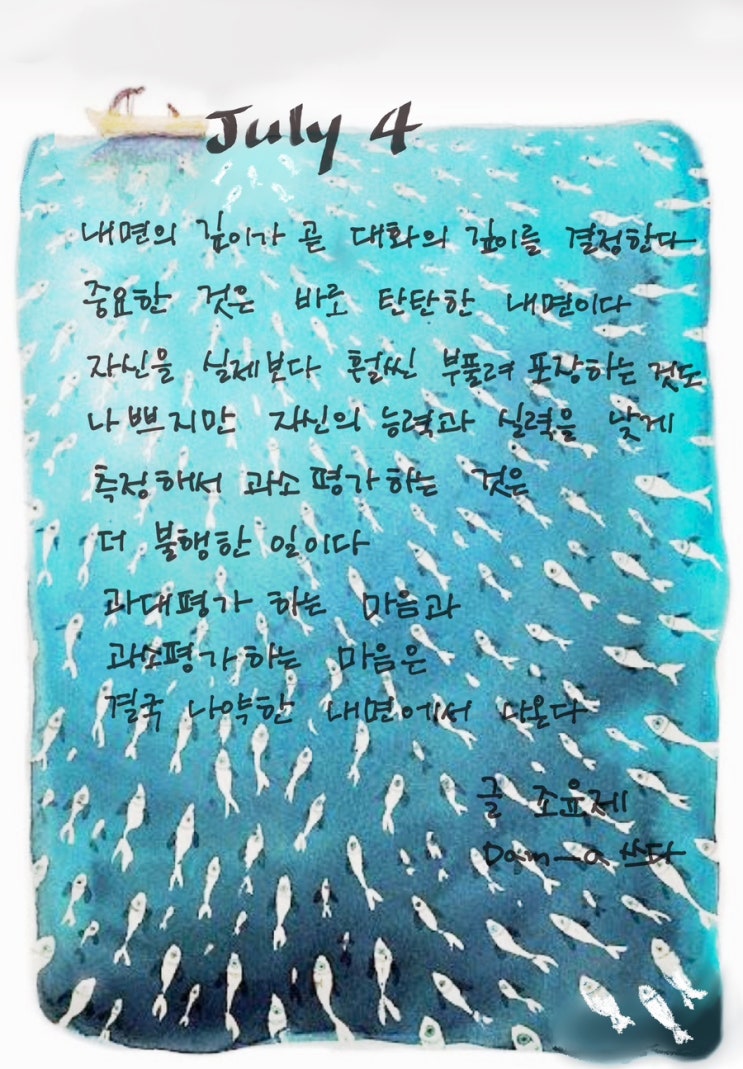 July 4
내면의 깊이가 곧 대화의 깊이를 결정한다
중요한 것은 바로 탄탄한 내면이다
자신을 실제보다 훨씬 부풀려 포장하는 것도
나쁘지만 자신의 능력과 실력을 낮게
측정해서 과소평가하는 것은
더 불행한 일이다
과대평가 하는 마음과
과소평가하는 마음은
결국 나약한 내면에서 나온다
글 조윤제
Dam-a 쓰다